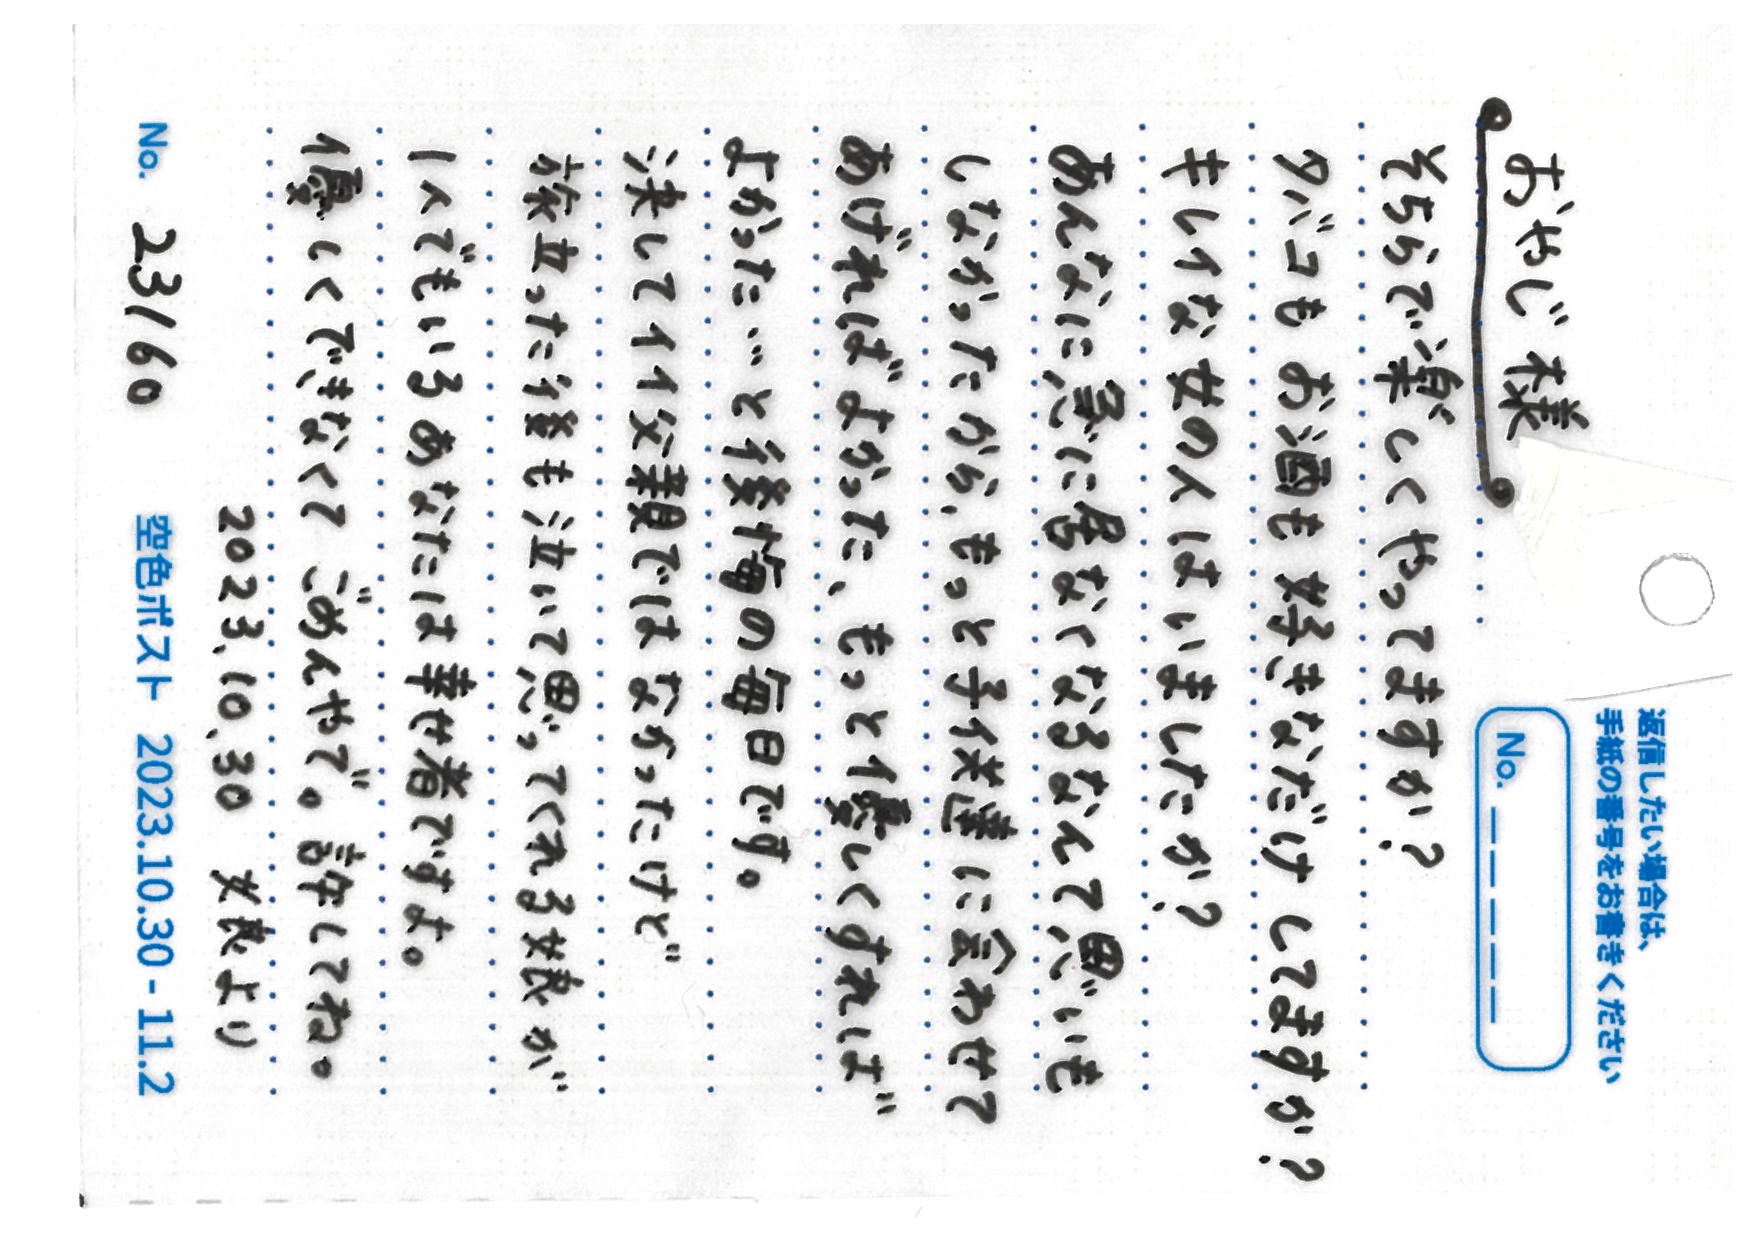 返信したい場合は、
手紙の番号をお書きください
No. _ _ _ _ _
おやじ様
そちらで楽しくやってますか?
タバコもお酒も好きなだけしてますか?
キレイな女の人はいましたか?
あんなに急に居なくなるなんて思いも
しなかったから、もっと子供達に会わせて
あげればよかった、もっと優しくすれば
よかった…と後悔の毎日です。
決してイイ父親ではなかったけど
旅立った後も泣いて思ってくれる娘が
1人でもいるあなたは幸せ者ですよ。
優しくできなくてごめんやで。許してね。
2023.10.30 娘より
No. 23160
空色ポスト 2023.10.30 - 11.2